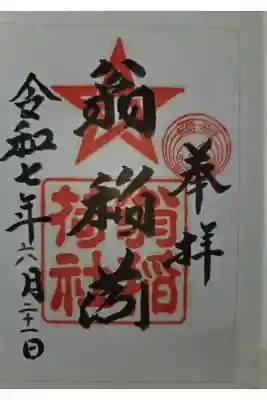 奉拝
翁稲荷
翁稲
荷社
令和七年六月二十一日